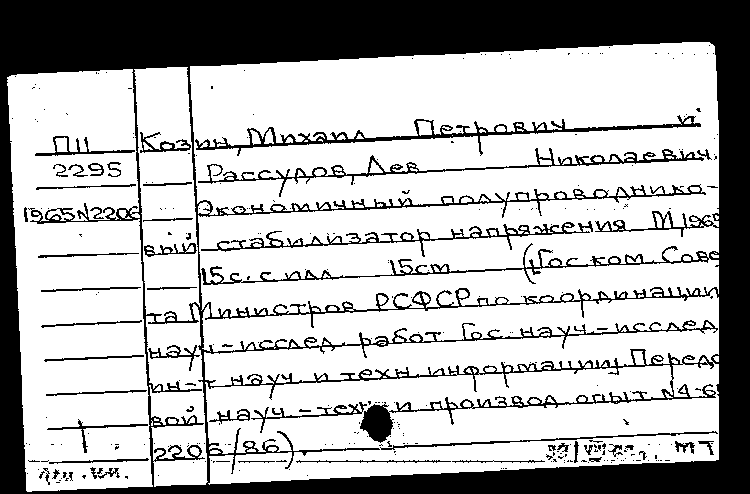 П11 Козин, Михаил Петрович и
2295 Рассудов, Лев Николаевич.
1965N2206 Экономичный полупроводнико-
вый стабилизатор напряжения М,1965
15с. с илл 15см (Гос ком. Сове
та Министров РСФСР по координации
науч-исслед. работ Гос. науч.-исслед
ин-т науч. и техн. информации Передо
вой науч-техн и производ. опыт N4-65
2206/86).